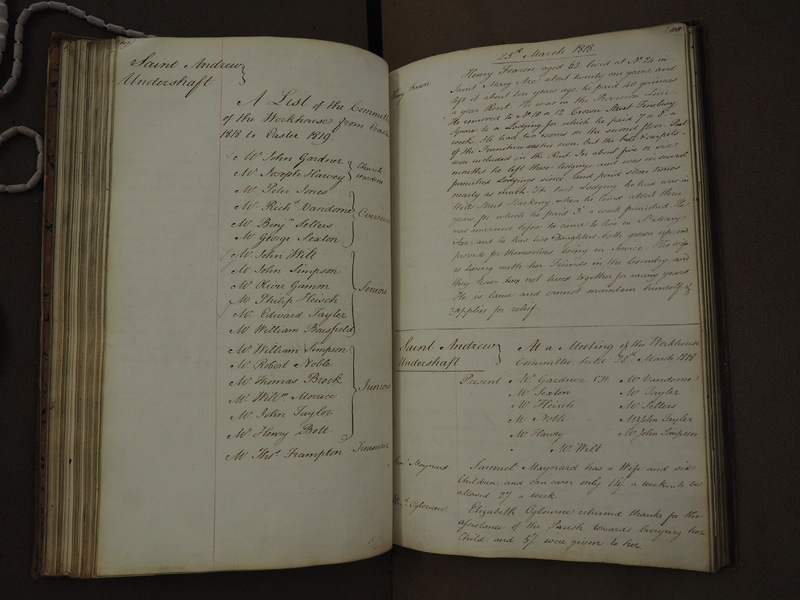 Saint Andrew
Undershaft
A List of the Committee
of the Workhouse from Easter
1818 to Easter 1819
Mr John Gardner
Mr Joseph Harvey
Church
wardens
Mr Peter Jones
Mr Richd Vandome
Mr Benjn Setters
Mr George Sexton
Overseers
Mr John Wilt
Mr John Simpson
Mr River Gamon
Mr Philip Heisch
Mr Edward Tayler
Mr William Bousfield
Seniors
Mr William Simpson
Mr Robert Noble
Mr Thomas Brook
Mr Willm Morice
Mr John Taylor
Mr Henry Bott
Juniors
Mr Thos Frampton Treasurer
108
25th March 1818
Henry Fearon
Henry Fearon aged 62 lived at No 24 in
Saint Mary Axe about twenty one years, and
left it about ten years ago, he paid 40 guineas
a year Rent. He was in the
He removed to No 10 or 12 Crown Street Finsbury
Square to a Lodging for which he paid 7 a
week. He had two rooms on the second floor. Part
of the Furniture was his own, but the
was included in the Rent. In about five or six
months he left those lodgings, and was in several
furnished Lodgings since, and paid some times
nearly as much. The last Lodging he had was in
Street Hackney, when he lived about three
years for which he paid 3/ a week furnished. He
was married before he came to live in St Mary
Axe, and he has two Daughters both grown up, and
provide for themselves being in Service. His wife
is living with her Friends in the Country and
they have not lived together for many years.
He is lame and cannot maintain himself &
applies for relief.
Saint Andrew
Undershaft
At a Meeting of the Workhouse
Committee held 28th March 1818
Present Mr Gardner CW Mr Vandome
Mr Sexton Mr Tayler
Mr Heisch Mr Setters
Mr Noble Mr John Tayler
Mr Harvey Mr John Simpson
Mr Wilt
Saml Maynard
Samuel Maynard has a Wife and six
Children and can earn only 14/ a week to be
allowed 2/ a week
Elizth Ogbourne
Elizabeth Ogbourne returned thanks for the
assistance of the Parish towards burying her
Child and 5/ were given to her.